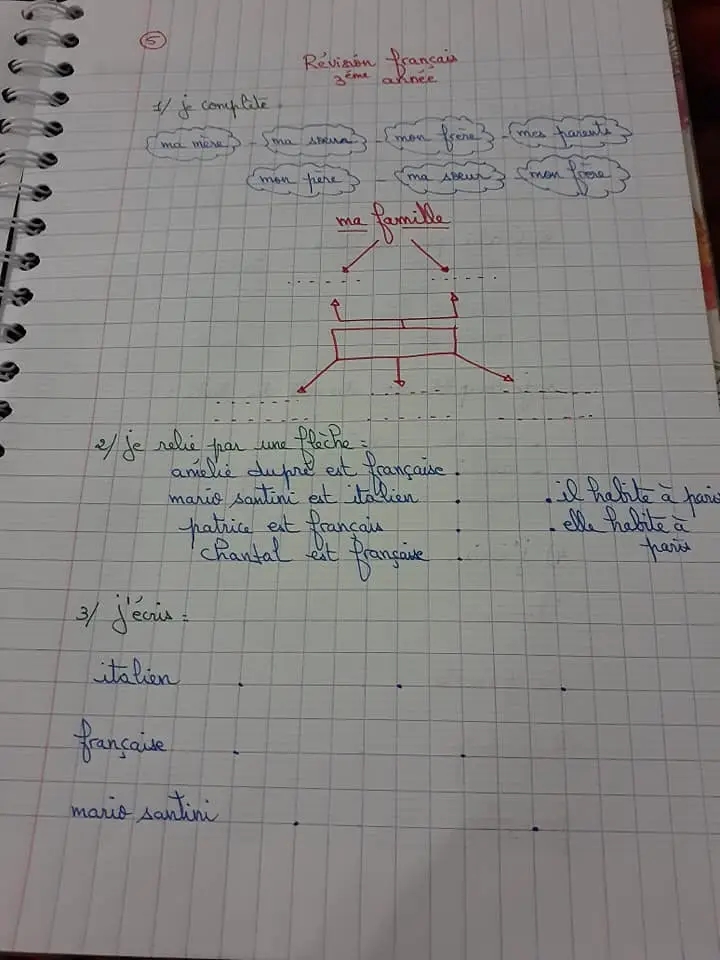 5
Révision français
3ème année
1/ je complète
ma mère - ma soeur - mon frère - mes parents
mon père - ma soeur - mon frère
ma famille
2/ je relie par une flèche :
amélie dupré est française .
mario santini est italien . . il habite à paris
patrice est français . . elle habite à
chantal est française . paris
3/ j'écris :
italien . . .
française . .
mario santini . .